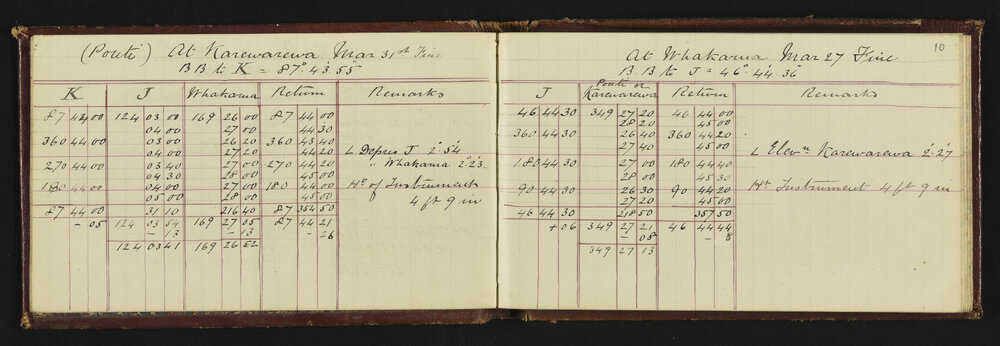 (Pouté) At Karewarewa Mar 31st Fine
B B to K = 87° 43' 55"
K J Whakama Return Remarks
87 44 00 124 03 00 169 26 00 87 44 00
04 00 27 00 44 30
360 44 00 03 00 26 20 360 43 40
04 00 27 20 44 20 L Depres J 2° 54'
270 44 00 03 40 27 00 270 44 20 " Whakama 2° 23'
04 30 28 00 45 00
180 44 00 04 00 27 00 180 44 00 Ht of Instrument
05 00 28 00 45 00 4 ft 9 in
87 44 00 31 10 216 40 87 354 50
- 05 124 03 54 169 27 05 87 44 21
- 13 - 13 - 26
124 03 41 169 26 52
10
At Whakama Mar 27 Fine
B. B to J = 46° 44' 36"
J Pouté or Karewarewa Return Remarks
46 44 30 349 27 20 46 44 00
28 20 45 00
360 44 30 26 40 360 44 20
27 40 45 00 L Elevn Karewarewa 2° 27'
180 44 30 27 00 180 44 40
28 00 45 00
90 44 30 26 30 90 44 20 Ht Instrument 4 ft 9 in
27 20 45 00
46 44 30 218 50 357 50
+ 06 349 27 21 46 44 44
- 08 - 8
349 27 13